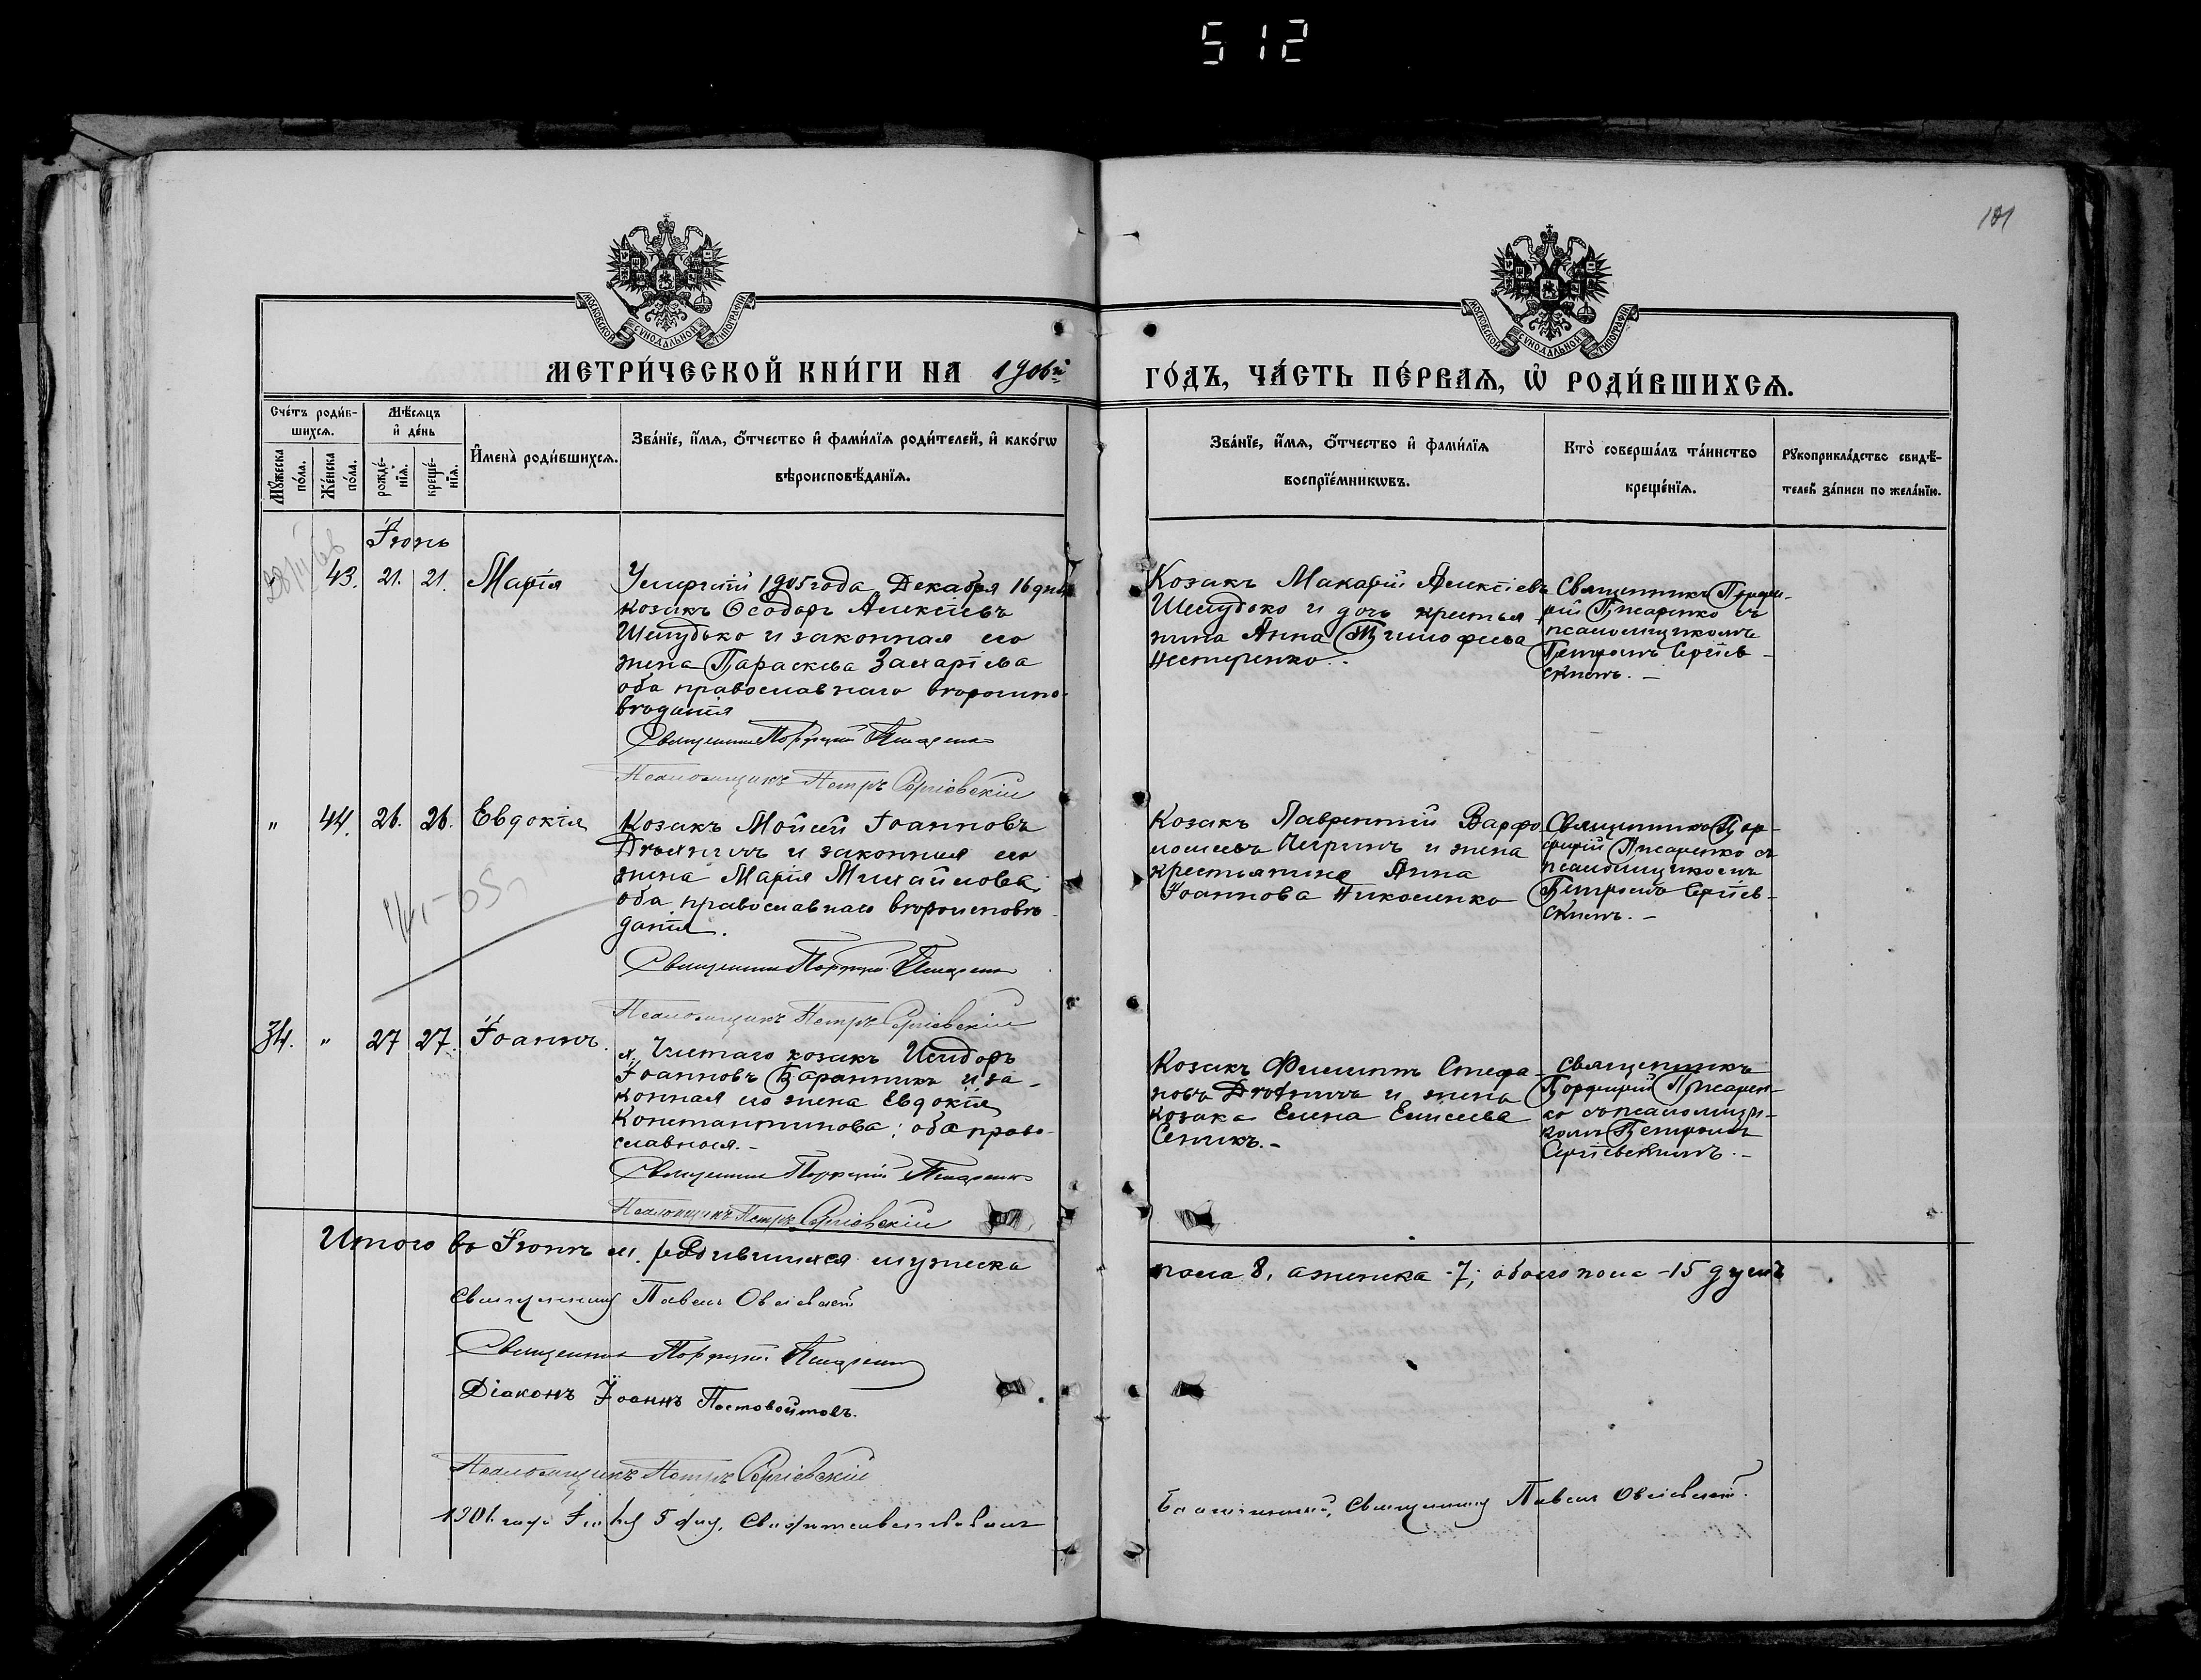 512
101
МОСКОВСКОЙ СѴНОДАЛЬНОЙ ТИПОГРАФІИ
МОСКОВСКОЙ СѴНОДАЛЬНОЙ ТИПОГРАФІИ
МЕТРИ́ЧЕСКОЙ КНИ́ГИ НА 1906й
ГО́ДЪ, ЧА́СТЬ ПЕ́РВАѦ, Ѡ҆ РОДИ́ВШИХСѦ.
Сче́тъ роди́в-
шихсѧ.
Мꙋ́жеска по́ла.
Же́нска по́ла.
Мѣ́сѧцъ
и҆ де́нь
рожде́-
нїѧ.
креще́-
нїѧ.
И҆мена̀ роди́вшихсѧ.
Зва́нїе, и҆́мѧ, ѻ҆́тчество и҆ фами́лїѧ роди́телей, и҆ како́гѡ
вѣроисповѣ́данїѧ.
Зва́нїе, и҆́мѧ, ѻ҆́тчество и҆ фами́лїѧ
воспрїе́мникѡвъ.
Кто̀ соверша́лъ та́инство
креще́нїѧ.
Рꙋкоприкла́дство свидѣ́-
телей за́писи по жела́нїю.
Іюнь
43. 21. 21. Марія
Умершій 1905 года Декабря 16 дня
козакъ Ѳеодоръ Алексѣевъ
Шелудько и законная его
жена Параскева Захаріева
оба православнаго вѣроиспо-
вѣданія
Священникъ Порфирій Писаренко
Псаломщикъ Петръ Сергіевскій
Козакъ Макарій Алексѣевъ
Шелудько и дочь крестья-
нина Анна Тимофеева
Нестеренко.
Священникъ Порфи-
рій Писаренко съ
псаломщикомъ
Петромъ Сергіев-
скимъ. -
" 44. 26. 26. Евдокія
Козакъ Мойсей Іоанновъ
и законная его
жена Марія Михайлова,
оба православнаго вѣроисповѣ-
данія.
Священникъ Порфирій Писаренко
Псаломщикъ Петръ Сергіевскій
Козакъ Лаврентій Варфо-
ломеевъ и жена
крестьянина Анна
Іоаннова Николенко
Священникъ Пор-
фирій Писаренко съ
псаломщикомъ
Петромъ Сергіев-
скимъ. -
34. " 27 27. Іоаннъ.
козакъ Исидоръ
Іоанновъ Баранникъ и за-
конная его жена Евдокія
Константинова; оба право-
славные. -
Священникъ Порфирій Писаренко
Псаломщикъ Петръ Сергіевскій
Козакъ Филиппъ Стефа-
новъ и жена
козака Елена Елисеева
Сеникъ. -
Священникъ
Порфирій Писарен-
ко съ псаломщи-
комъ Петромъ
Сергіевскимъ. -
Итого въ Іюнѣ м. родившихся мужеска
пола 8, а женска - 7; обоего пола - 15 душъ
Священникъ Павелъ
Священникъ Порфирій Писаренко
Діаконъ Іоаннъ Постовойтовъ.
Псаломщикъ Петръ Сергіевскій
1906 года 5 дня, свидѣтельствовалъ
Благочинный, Священникъ Павелъ